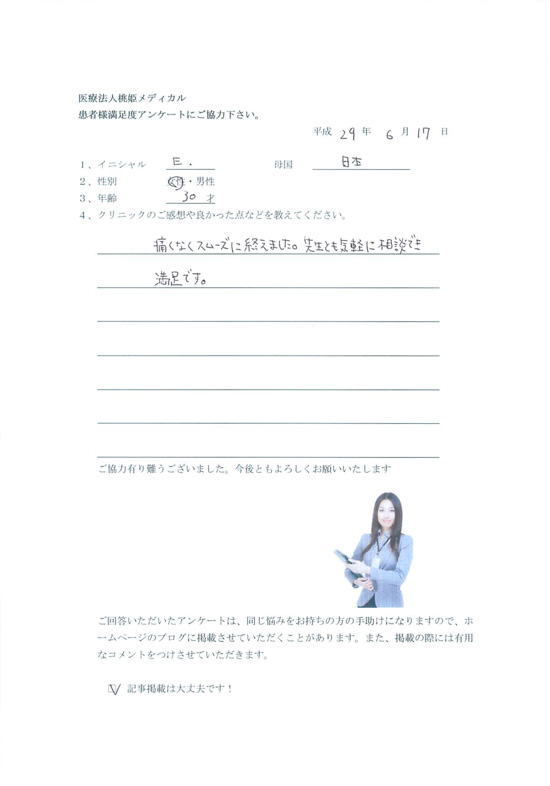 医療法人桃姫メディカル
患者様満足度アンケートにご協力下さい。
平成 29 年 6 月 17 日
1、イニシャル E. 母国 日本
2、性別 女性・男性
3、年齢 30 才
4、クリニックのご感想や良かった点などを教えてください。
痛くなくスムーズに終えました。先生とも気軽に相談でき
満足です。
ご協力有り難うございました。今後ともよろしくお願いいたします
ご回答いただいたアンケートは、同じ悩みをお持ちの方の手助けになりますので、ホ
ームページのブログに掲載させていただくことがあります。また、掲載の際には有用
なコメントをつけさせていただきます。
☑ 記事掲載は大丈夫です！